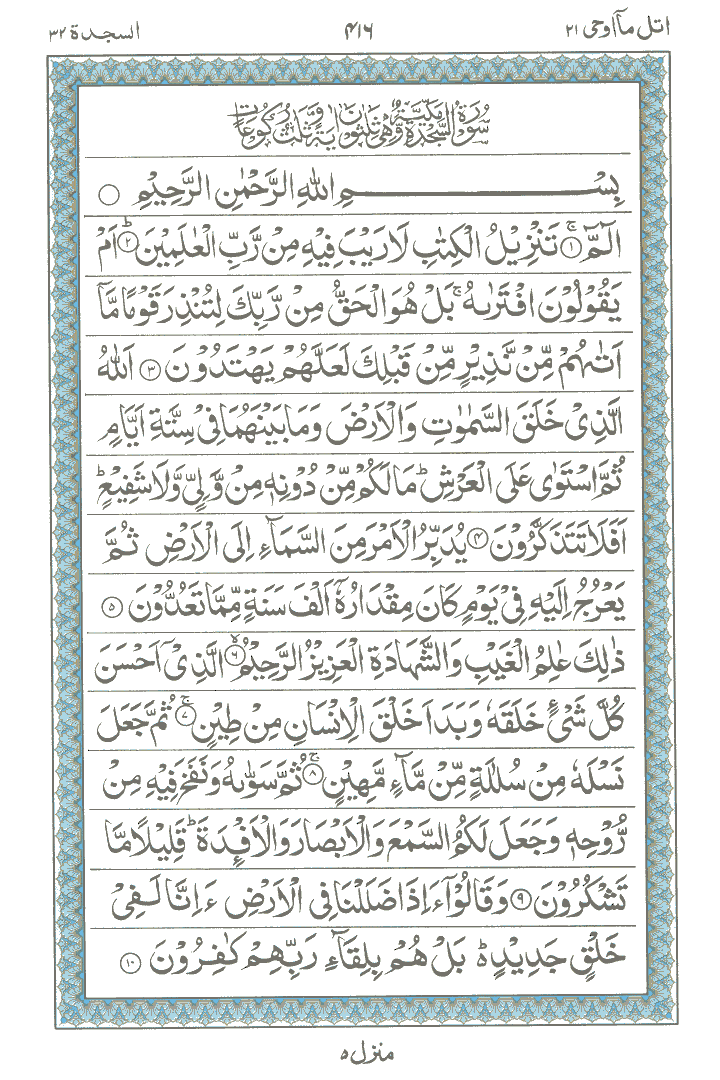 اتل مآ اوحی ۲۱
۴۱۶
السجدة ۳۲
سُوْرَةُ السَّجْدَةِ مَكِّيَّةٌ وَّهِيَ ثَلٰثُوْنَ اٰيَةً وَّثَلٰثُ رُكُوْعَاتٍ
بِسْمِ اللّٰهِ الرَّحْمٰنِ الرَّحِيْمِ ○
الٓمّٓ ۚ﴿۱﴾ تَنْزِيْلُ الْكِتٰبِ لَا رَيْبَ فِيْهِ مِنْ رَّبِّ الْعٰلَمِيْنَ ؕ﴿۲﴾ اَمْ
يَقُوْلُوْنَ افْتَرٰىهُ ۚ بَلْ هُوَ الْحَقُّ مِنْ رَّبِّكَ لِتُنْذِرَ قَوْمًا مَّاۤ
اَتٰىهُمْ مِّنْ نَّذِيْرٍ مِّنْ قَبْلِكَ لَعَلَّهُمْ يَهْتَدُوْنَ ﴿۳﴾ اَللّٰهُ
الَّذِيْ خَلَقَ السَّمٰوٰتِ وَالْاَرْضَ وَمَا بَيْنَهُمَا فِيْ سِتَّةِ اَيَّامٍ
ثُمَّ اسْتَوٰى عَلَى الْعَرْشِ ؕ مَا لَكُمْ مِّنْ دُوْنِهٖ مِنْ وَّلِيٍّ وَّلَا شَفِيْعٍ ؕ
اَفَلَا تَتَذَكَّرُوْنَ ﴿۴﴾ يُدَبِّرُ الْاَمْرَ مِنَ السَّمَآءِ اِلَى الْاَرْضِ ثُمَّ
يَعْرُجُ اِلَيْهِ فِيْ يَوْمٍ كَانَ مِقْدَارُهٗۤ اَلْفَ سَنَةٍ مِّمَّا تَعُدُّوْنَ ﴿۵﴾
ذٰلِكَ عٰلِمُ الْغَيْبِ وَالشَّهَادَةِ الْعَزِيْزُ الرَّحِيْمُ ۙ﴿۶﴾ الَّذِيْۤ اَحْسَنَ
كُلَّ شَيْءٍ خَلَقَهٗ وَبَدَاَ خَلْقَ الْاِنْسَانِ مِنْ طِيْنٍ ۚ﴿۷﴾ ثُمَّ جَعَلَ
نَسْلَهٗ مِنْ سُلٰلَةٍ مِّنْ مَّآءٍ مَّهِيْنٍ ۚ﴿۸﴾ ثُمَّ سَوّٰىهُ وَنَفَخَ فِيْهِ مِنْ
رُّوْحِهٖ وَجَعَلَ لَكُمُ السَّمْعَ وَالْاَبْصَارَ وَالْاَفْـِٕدَةَ ؕ قَلِيْلًا مَّا
تَشْكُرُوْنَ ﴿۹﴾ وَقَالُوْۤا ءَاِذَا ضَلَلْنَا فِي الْاَرْضِ ءَاِنَّا لَفِيْ
خَلْقٍ جَدِيْدٍ ؕ۬ بَلْ هُمْ بِلِقَآءِ رَبِّهِمْ كٰفِرُوْنَ ﴿۱۰﴾
منزل ۵